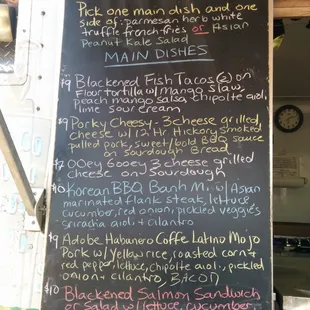 Pick one main dish and one
side of: parmesan herb white
truffle french fries or Asian
Peanut Kale Salad
MAIN DISHES
$9 Blackened Fish Tacos (2) on
Flour tortilla w/ mango slaw,
peach mango salsa, chipolte aioli,
lime sour cream
$9 Porky Cheesy - 3 cheese grilled
cheese w/ 12 Hr Hickory smoked
pulled pork, sweet/bold BBQ sauce
on Sourdough Bread
$7 OOey Gooey 3 cheese grilled
cheese on Sourdough
$10 Korean BBQ Banh Mi w/ Asian
marinated flank steak, lettuce
cucumber, red onion, pickled veggies
sriracha aioli + cilantro
$9 Adobe Habanero Coffe Latino Mojo
Pork w/ Yellow rice, roasted corn +
red pepper, lettuce, chipolte aioli, pickled
onion + cilantro, BACON
$10 Blackened Salmon Sandwich
or Salad w/ lettuce, cucumber